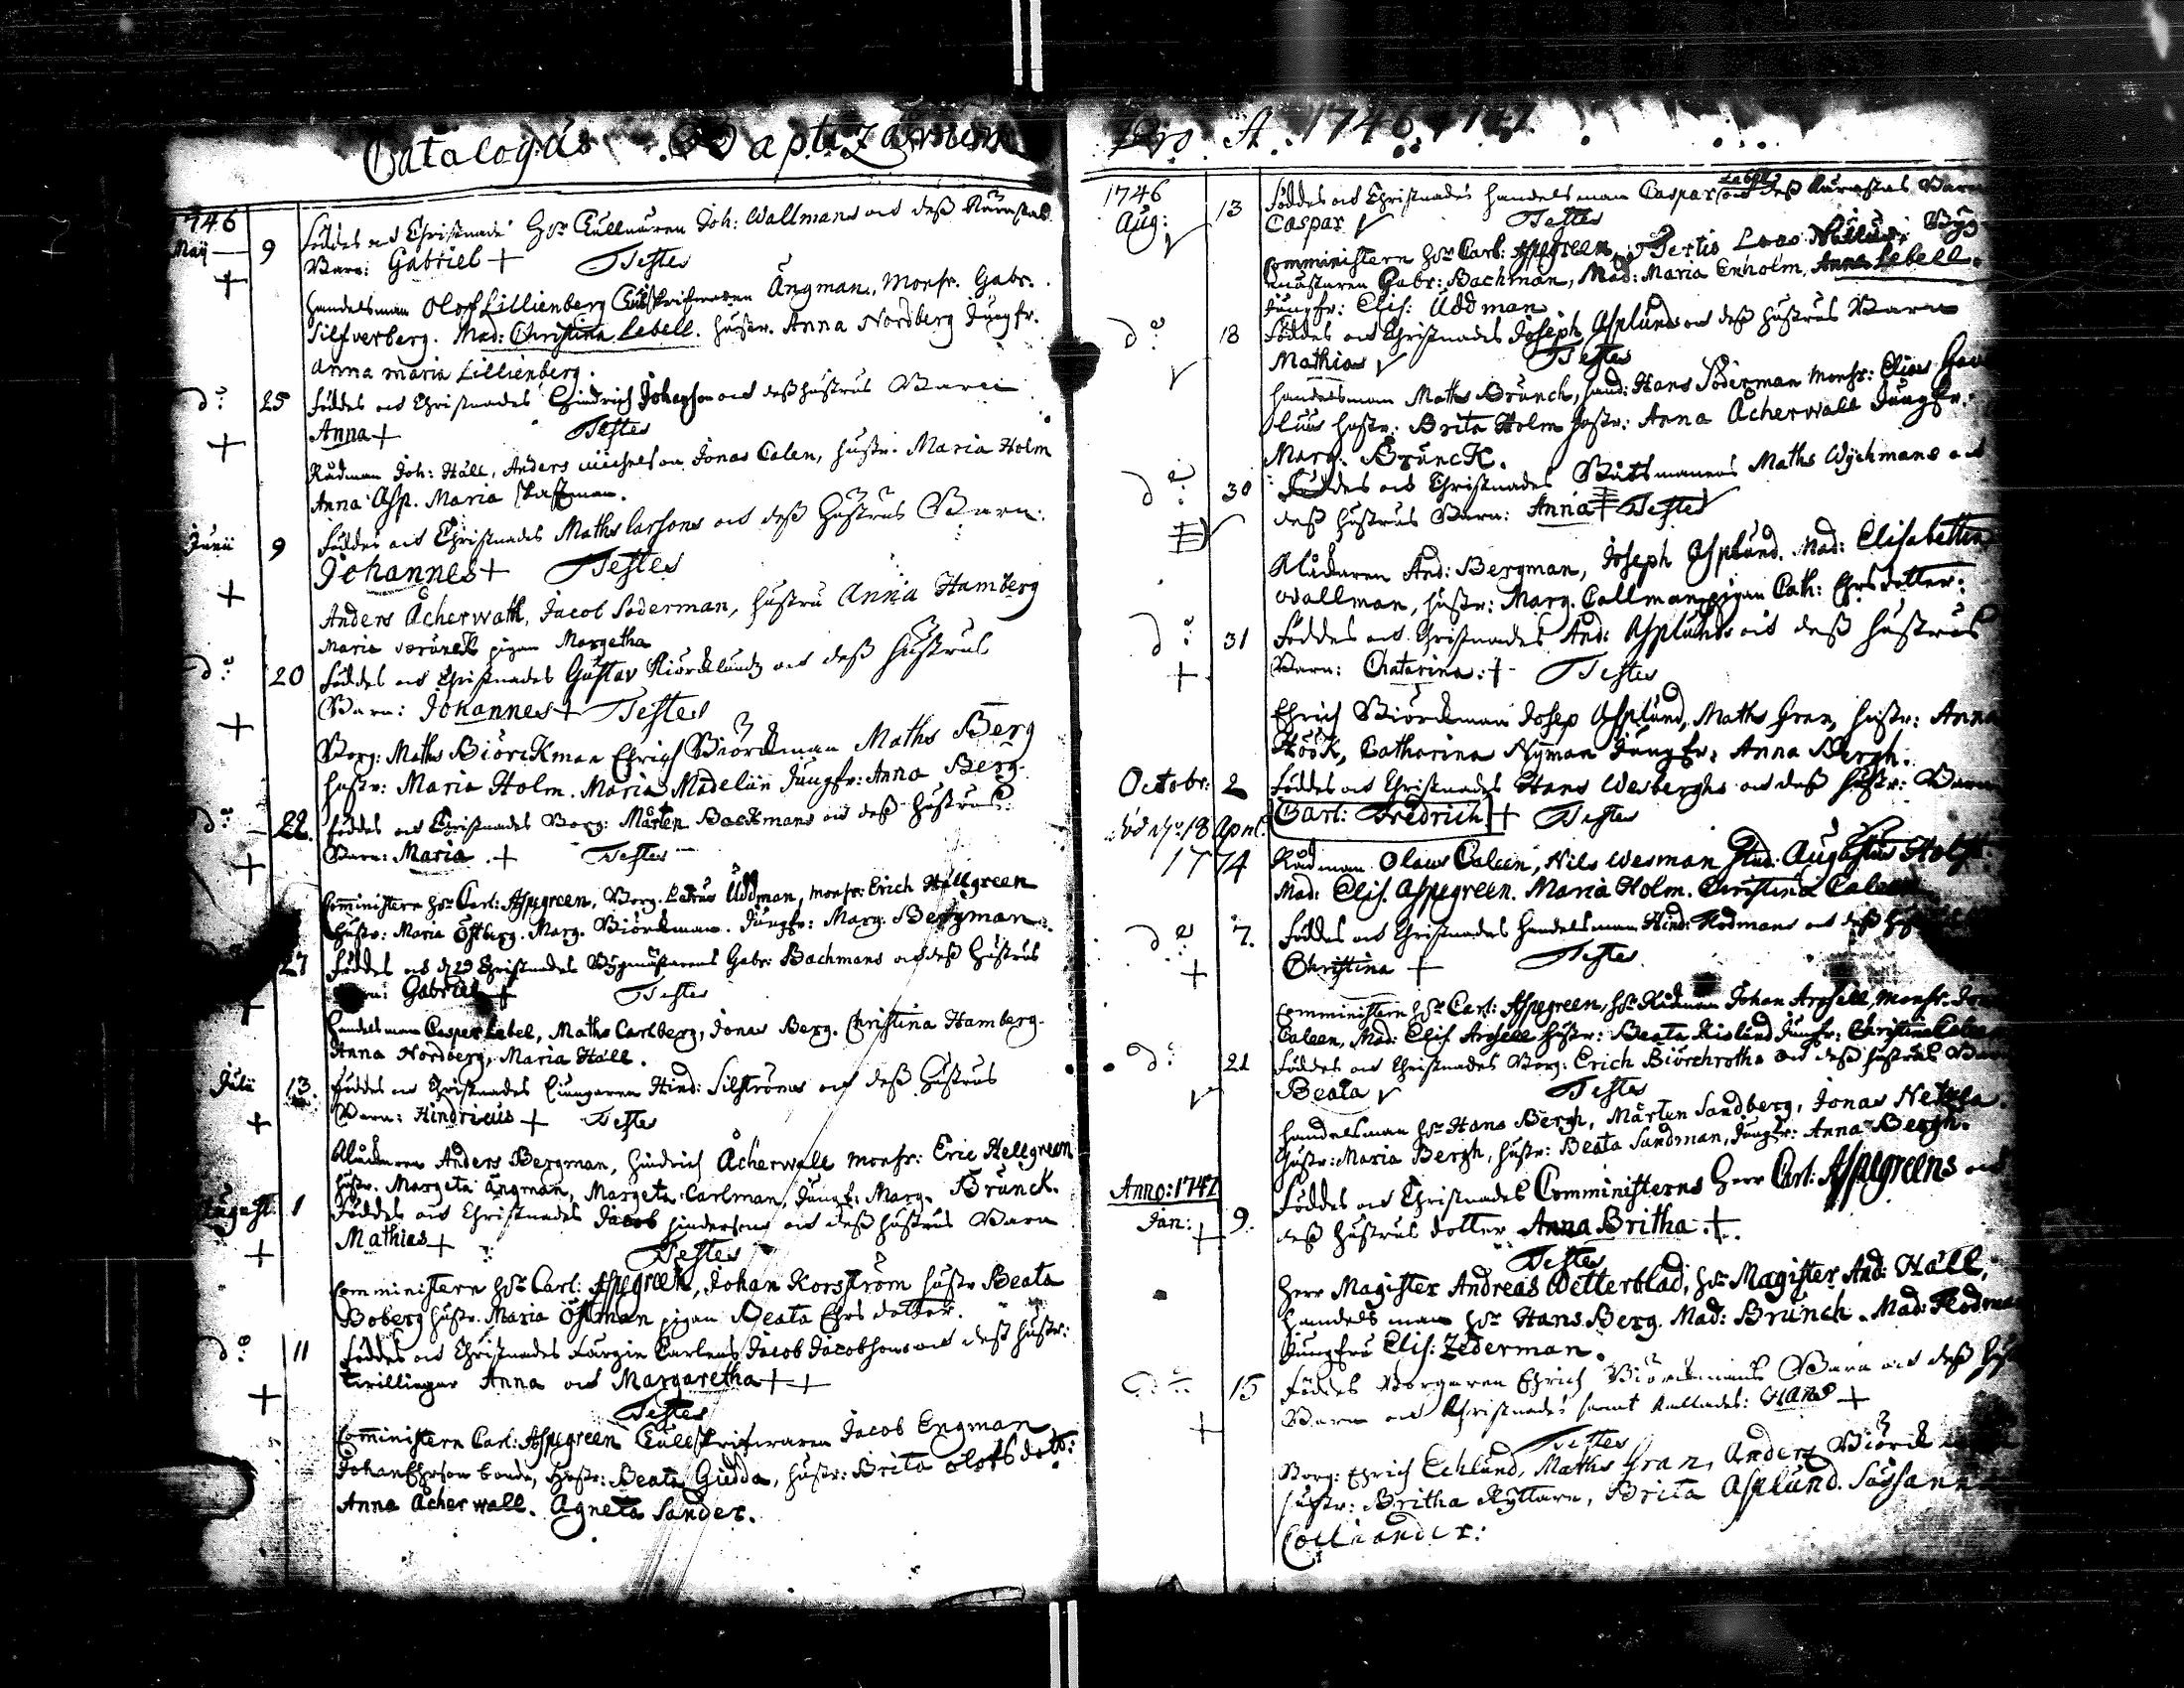 Catalogus Baptizatorum
1746
Maij 9 Föddes och Christnades H:r Tullnären Joh: Wallmans och dess Kär
Barn: Gabriel + Testes
Handelsman Olof Lillienberg Ångman, Monsr. Gabr.
Silfverberg. Mad: Christina Lebell. Hustr. Anna Nordberg Jungfr.
Anna Maria Lillienberg.
d:o 25 Föddes och Christnades Hindrich Johansson och dess hustrus Barn
Anna + Testes
Rådman Joh: Häll, Anders Michelson Jonas Calen, hustr. Maria Holm
Anna Asp. Maria
Junii 9 Föddes och Christnades Maths Larsons och dess Hustrus Barn:
Johannes + Testes
Anders Acherwall, Jacob Söderman, hustru Anna Hamberg
Maria Brunck pigan Margetha
d:o 20 Föddes och Christnades Gustav Biörcklunds och dess Hustrus
Barn: Johannes + Testes
Borg: Maths Biörckman Ehrich Biörckman Maths Berg
hustr: Maria Holm. Maria Madelün Jungfr: Anna Berg.
d:o 22. Föddes och Christnades Borg: Mårten Backmans och dess Hustrus
Barn: Maria. + Testes
Comministern H:r Carl: Aspegreen, Borg. Petrus Uddman, Monsr: Erich Hällgreen
Hustr: Maria Östberg. Marg. Biörckman. Jungfr: Marg. Bergman.
27 Föddes och d. 29 Christnades Byggmästarens Gabr: Bachmans och dess Hustrus
Gabriel + Testes
Handelsman Casper Lebel, Maths Carlberg, Jonas Berg. Christina Hamberg.
Anna Nordberg, Maria Häll.
Julii 13. Föddes och Christnades Hind: Silströms och dess Hustrus
Barn: Hindricus + Testes
Anders Bergman, Hindrich Acherwall Monsr: Eric Hellgreen
Hustr. Margeta Ångman, Margeta Carlman, Jungf: Marg. Brunck.
August: 1 Föddes och Christnades Jacob Hindersons och dess hustrus Barn
Mathias + Testes
Comministern H:r Carl: Aspegreen, Johan Korström hustr Beata
Boberg hustr. Maria Östman pigan Beata Ehrs dotter.
d:o 11 Föddes och Christnades Jacob Jacobsons och dess hustr:
twillingar Anna och Margaretha + +
Testes
Comministern Carl: Aspegreen Tullskrifwaren Jacob Engman
Johan Ehrson bonde, Hustr: Beata Giedda, hustr: Brita Olofsdotr:
Anna Acherwall. Agneta Sander.
Pro A: 1746 1747
1746
Aug: 13 Föddes och Christnades Handelsman Caspar Labells och dess Barn
Caspar Testes
Comministern H:r Carl: Aspegreen,
mästaren Gabr: Bachman, Mad: Maria Enholm, Anna Lebell.
Jungfr: Elis: Uddman
d:o 18 Föddes och Christnades Joseph Asplunds och dess hustrus Barn
Mathias Testes
Handelsman Maths Brunck, Hand: Hans Söderman Monsr: Elias
hustr: Brita Holm hustr: Anna Acherwall Jungfr:
Marg. Brunck.
d:o 30 Föddes och Christnades Båtsmannens Maths Wychmans och
dess hustrus Barn: Anna Testes
And: Bergman, Joseph Asplund. Mad: Elisabetha
Wallman, hustr: Marg. Callman, pigan Cath: Ehrsdotter:
d:o 31 Föddes och Christnades And: Asplunds och dess hustrus
Barn: Chatarina: + Testes
Ehrich Biörckman Josep Asplund, Maths Gran, hustr: Anna
Höök, Catharina Nyman Jungfr: Anna Bergh.
Octobr: 2 Föddes och Christnades Hans Wesberghs och dess hustr: Barn
Carl: Fredrich + Testes
död d. 18 April.
1774
Rådman Olaus Caleen, Nils Wesman Stud: Augustus Holst
Mad: Elis. Aspegreen. Maria Holm. Christina Caleen
d:o 7. Föddes och Christnades Handelsman Hind: Rodmans och dess
Christina + Testes
Comministern H:r Carl: Aspegreen, H:r Rådman Johan Argsell, Monsr.
Caleen, Mad: Elis Argsell hustr: Beata Jungfr: Christina Calen
d:o 21 Föddes och Christnades Borg: Erich Biörchroths och dess hustrus Barn
Beata Testes
Handelsman H:r Hans Bergh, Mårten Sandberg, Jonas
Hustr: Maria Bergh, hustr: Beata Sandman, Jungfr: Anna Bergh.
Anno: 1747
Jan: 9. Föddes och Christnades Comministerns Herr Carl: Aspegreens och
dess hustrus dotter Anna Britha. +.
Testes
Herr Magister Andreas Wetterblad, H:r Magister And: Häll,
Handelsman H:r Hans Berg. Mad: Brunck. Mad: Rodman
Jungfru Elis: Zederman.
d:o 15 Föddes Borgaren Ehrich Biörckmans Barn och dess
Barn och Christnades samt kallades: Hans +
Testes
Borg: Ehrich Echlund, Maths Gran, Anders Biörck
hustr: Britha Ryttare, Brita Asplund. Sussanna
Colliander: